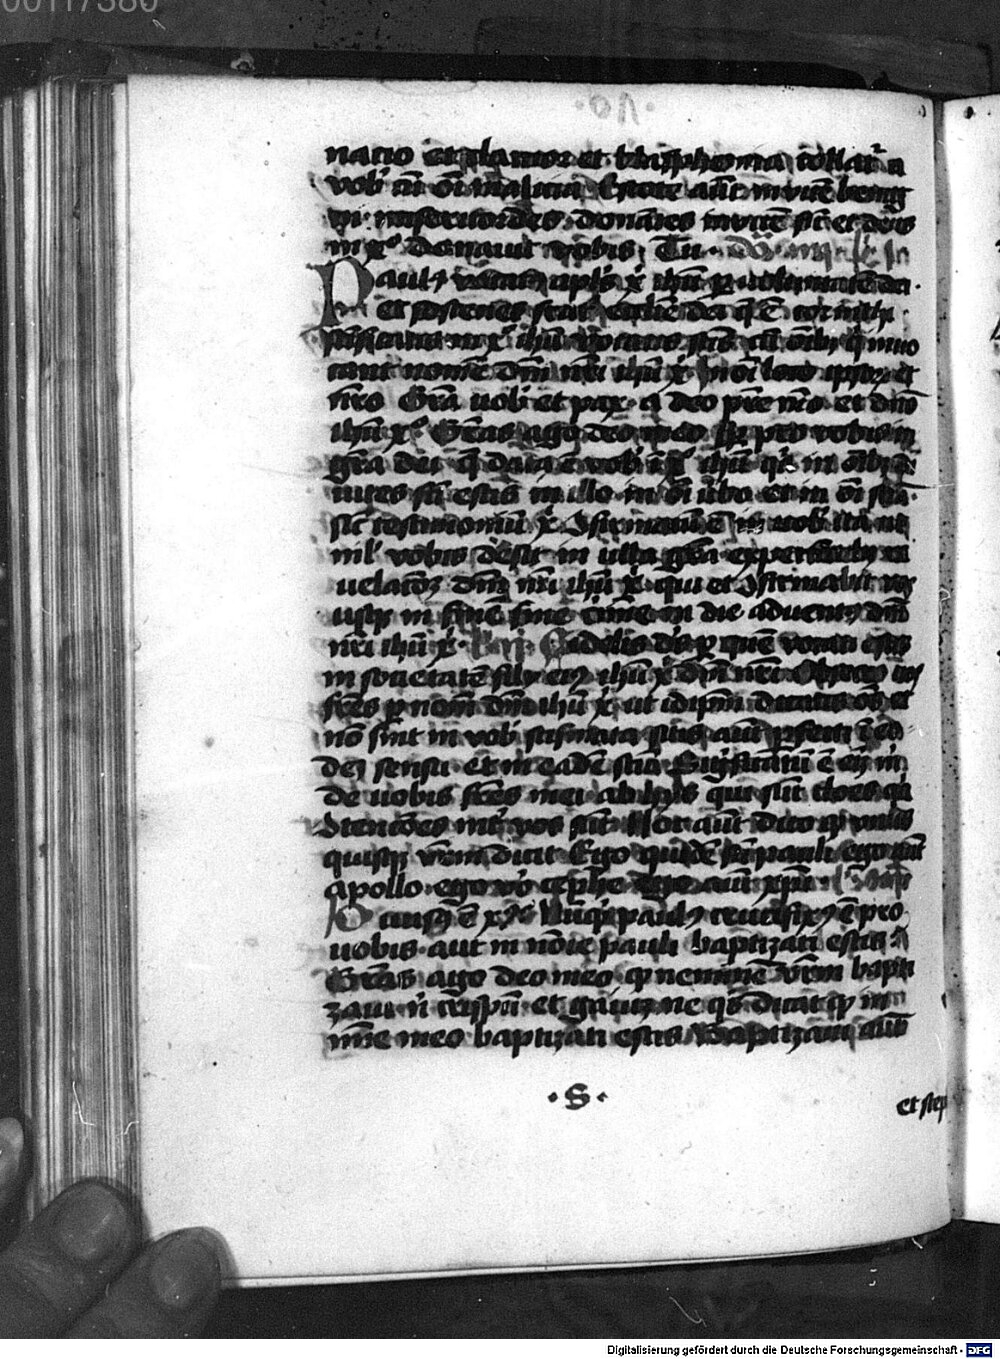 00117380
natio et clamor et blasphemia tollat̉ a
vob̄ cū oī malicia Estote aūt inuicē benig
ni misericordes donātes inuicē sic̄ et deus
in xͦ donauit vobis Tu
Paulꝯ vocatꝯ aplꝰs x̄ ihū ꝑ volūtatē dei
et sostenes frat̉ ecclīe dei q̄ ē corinthi
sc̄ificatis in xͦ ihū vocatis sc̄is cū oīb̄ q̄ inuo
cant nomē dn̄i nr̄i ihū x̄ in oī loco ipsoꝝ et
nr̄o Gr̄a uob̄ et pax a deo pr̄e nr̄o et dn̄o
ihū xͦ Gr̄as ago deo meo sꝑ pro vobis in
gr̄a dei q̄ data ē vob̄ ī xͦ ihū q̄ in oīb̄ di
uites fc̄i estis in illo in oī ūbo et in oī scīa
sic̄ testimoniū x̄ ꝯfirmatū ē in uob̄ ita ut
nil̄ vobis desit in ulla gr̄a expectātib̄ re
uelacōꝫ dn̄i nr̄i ihū x̄ qui et ꝯfirmabit vos
usqꝫ in finē sine cīme in die aduentꝯ dn̄i
nr̄i ihū x̄ Fidelis dꝰs ꝑ quē vocati estis
in societatē filii eiꝯ ihū x̄ dn̄i nr̄i Obsecro vos
fr̄es ꝑ nom̄ dn̄i ihū x̄ ut idip̄m dicatis om̄s et
nō sint in vob̄ scismata sitis aūt ꝑfecti ī eo
dē sensu et in eadē scīa Sig̅ficatū ē em̄ m̄
de uobis fr̄es mei ab hys qui sūt cloes qꝛ
ꝯtencōes int̉ vos sūt Hoc aūt dico qꝫ vnus
quisqꝫ vr̄m dicit Ego quidē sū pauli ego aūt
apollo ego v̄o cephe ego aūt xp̄i
Diuisꝯ ē xꝰ Nūqꝫ paulꝯ crucifixꝯ ē pro
uobis aut in nōīe pauli baptizati estis
Gr̄as ago deo meo qꝫ neminē vr̄m bapti
zaui n̄ crispū et gaiū ne qꝫ dicat qꝫ in
nōīe meo baptizati estis Baptizaui aūt
· S ·
et step
Digitalisierung gefördert durch die Deutsche Forschungsgemeinschaft - DFG